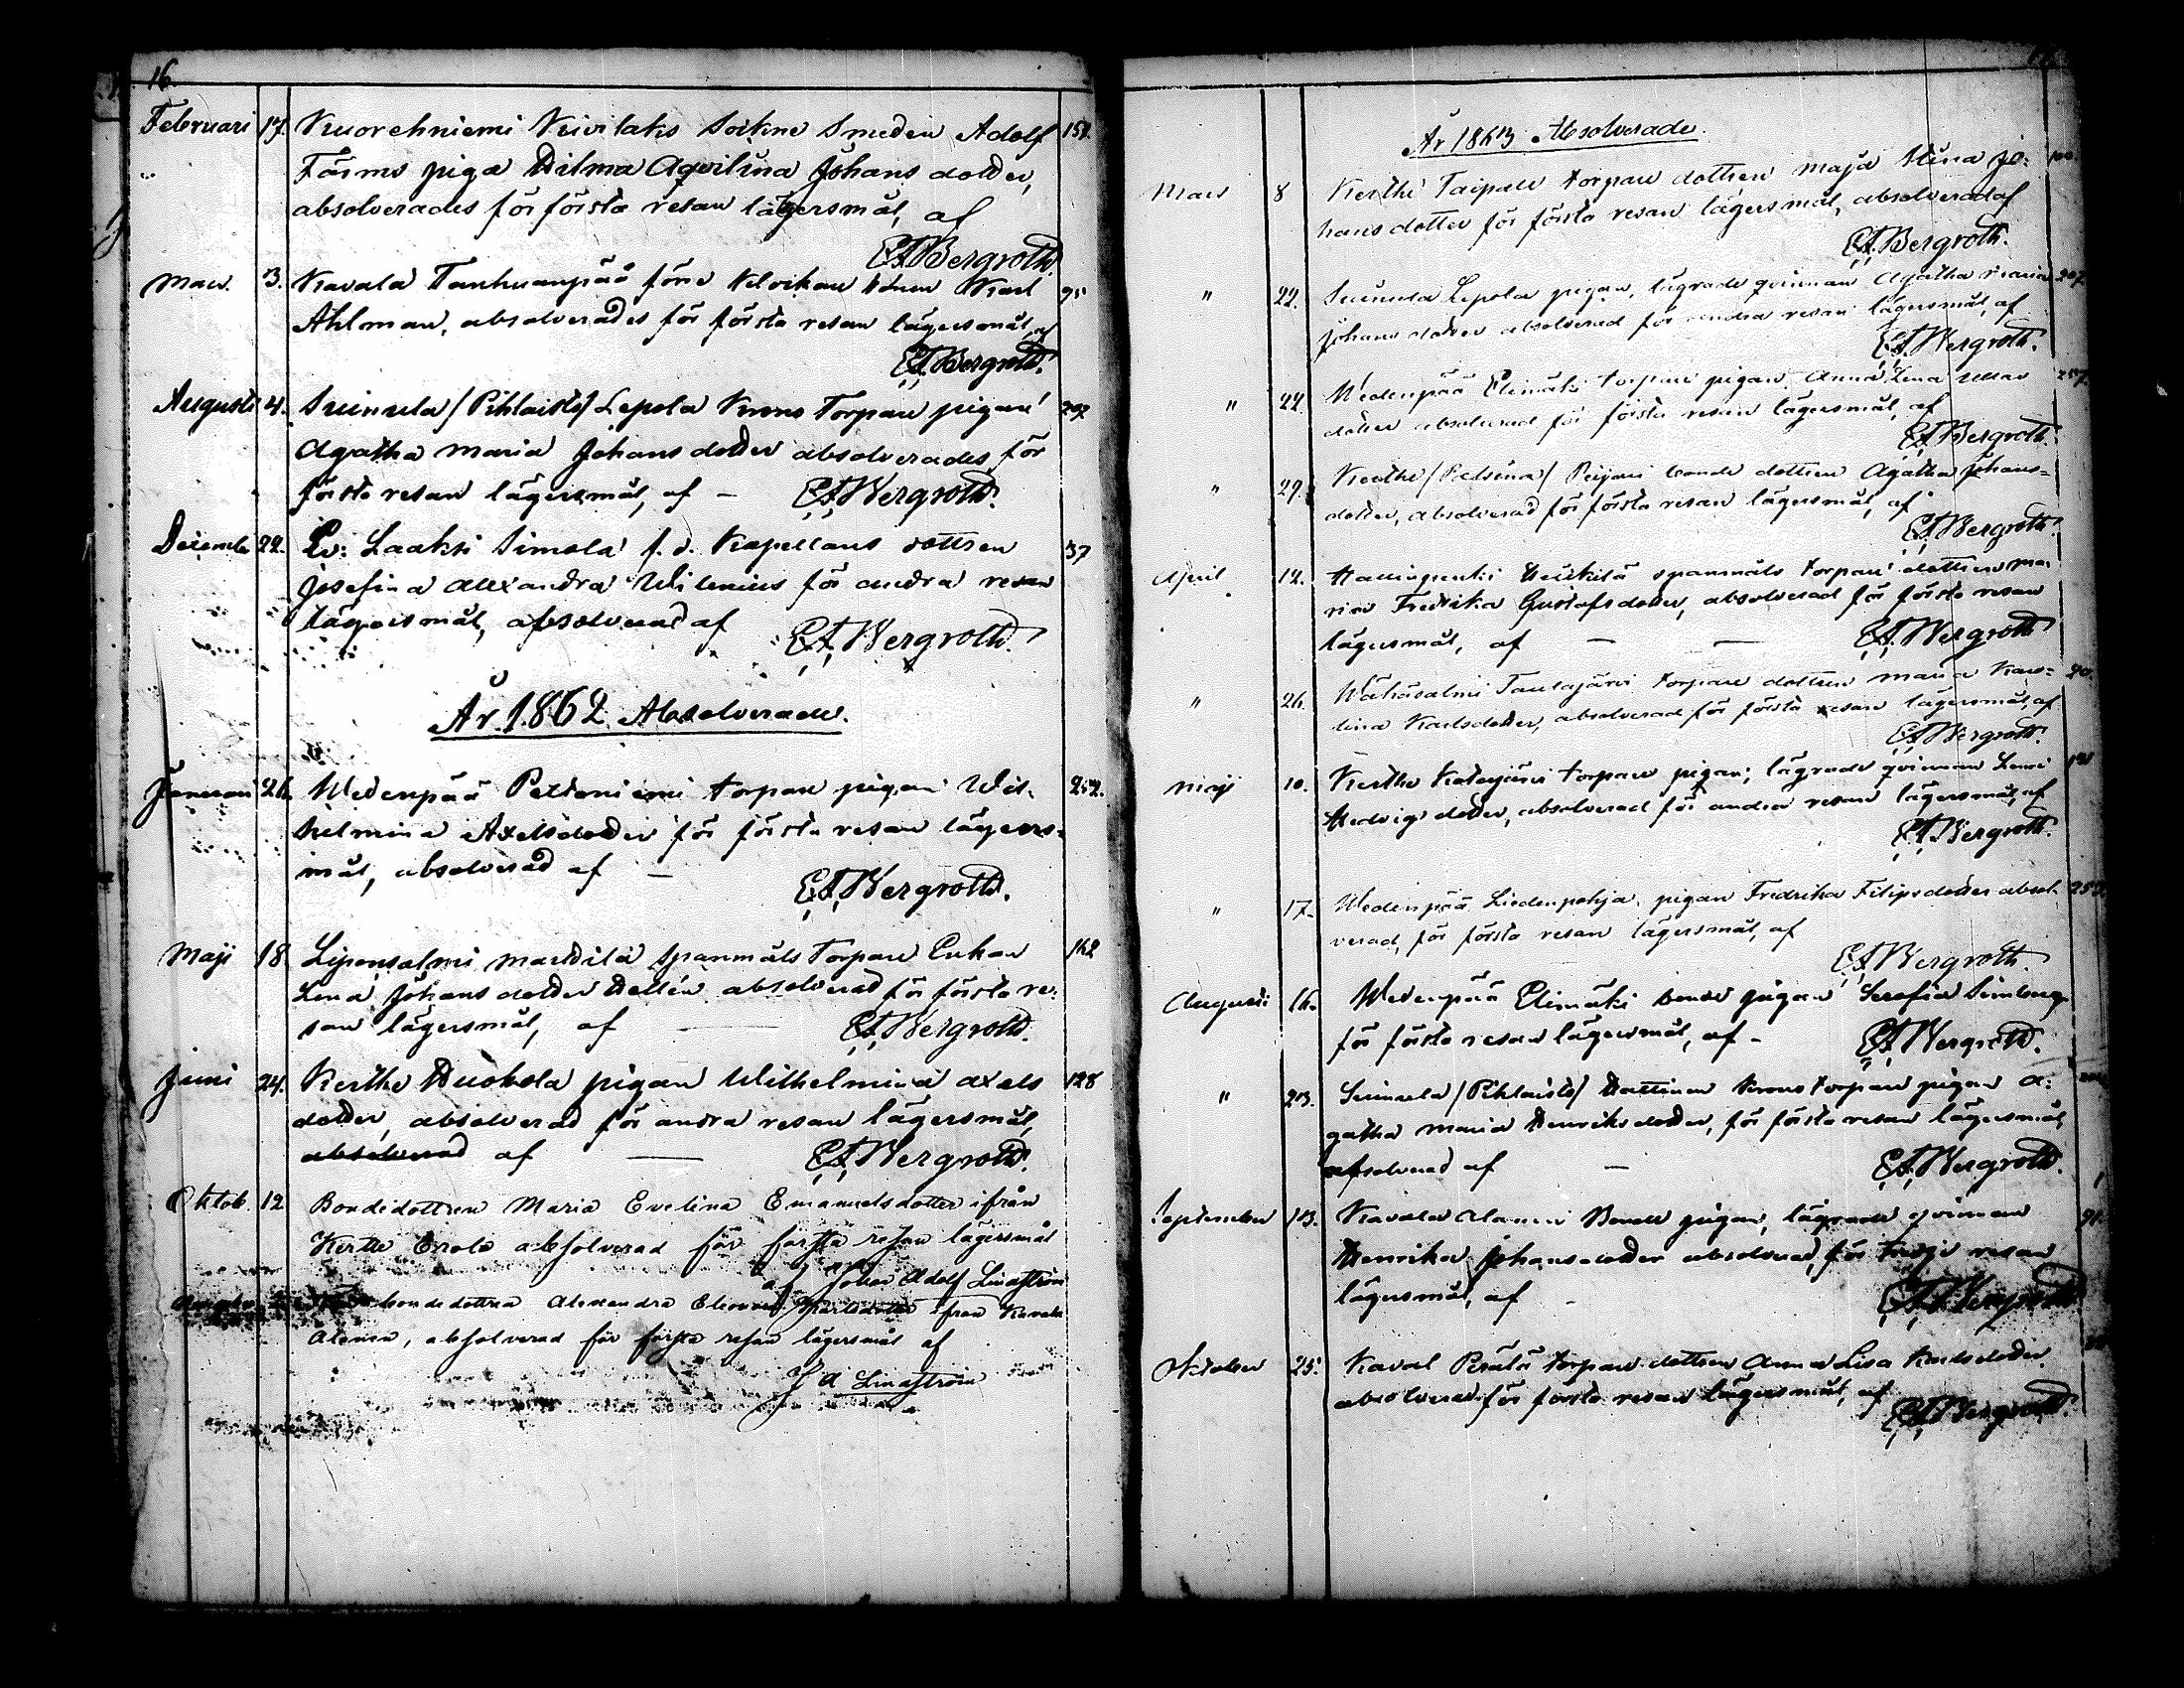 16.
Februari 17. Kuorehniemi Kivilaks Soikene Smeden Adolf 151.
Färms piga Hilma Aqvilina Johans dotter,
absolverades för första resan lägersmål, af
EA Bergroth.
Mars 3. Kavala Tanhuanpää förre Karl 95
Ahlman, absolverades för första resan lägersmål, af
EA Bergroth.
Augusti 4. Suinula /Pihlaisto/ Lepola Krono Torpare pigan 207
Agatha Maria Johans dotter absolverades för
första resan lägersmål, af — EA Bergroth.
December 22. Laaksi Simola f. d. Kapellans dottren 37
Josefina Alexandra Wilenius för andra resan
lägersmål, absolverad af EA Bergroth.
År 1862 Absolverade.
Januari 26. Wedenpää Pettäniemi torpare pigan Wil- 252.
helmina Axelsdotter för första resan lägers-
mål, absolverad af — EA Bergroth.
Maji 18. Liponsalmi Marttila spanmåls Torpare Enkan 162
Lena Johans dotter Hellén absolverad för första re-
san lägersmål, af — EA Bergroth.
Juni 24. Kertte Huokola pigan Wilhelmina Axels 128
dotter, absolverad för andra resan lägersmål,
absolverad af — EA Bergroth.
Oktob. 12 Bondedottren Maria Evelina Emanuelsdotter ifrån
Kertte Erola absolverad för första resan lägersmål
af Johan Adolf Lindström
bondedottren Alexandra Eleonora Karlsdotter från Kavala
Alanen, absolverad för första resan lägersmål af
J A Lindström
År 1863 Absolverade.
Mars 8 Kertte Taipale torpare dottren Maja Stina Jo- 100.
hans dotter för första resan lägersmål, absolverad af
EA Bergroth.
" 22. Suinula Lepola pigan, lägrade qvinnan Agatha Maria 207.
Johans dotter absolverad för andra resan lägersmål, af
EA Bergroth.
" 22. Wedenpää Elimäki torpare pigan Anna Lena 257.
dotter absolverad för första resan lägersmål, af
EA Bergroth.
" 29. Kertte / / Peijari bonde dottren Agatha Johans-
dotter, absolverad för första resan lägersmål, af
EA Bergroth.
April 12. Heikkilä spanmåls torpare dottren Ma-
ria Fredrika Gustafsdotter, absolverad för första resan
lägersmål, af — — EA Bergroth
" 26. Wähäsalmi Taulajärvi torpare dottren Maria Karo- 20.
lina Karlsdotter, absolverad för första resan lägersmål, af
EA Bergroth.
Maji 10. Kertte Katajärvi torpare pigan, lägrade qvinnan
Hedvigs dotter, absolverad för andra resan lägersmål, af
EA Bergroth.
" 17. Wedenpää Liedenpohja pigan Fredrika Filipsdotter absol-
verad, för första resan lägersmål, af
EA Bergroth.
Augusti 16. Wedenpää Elimäki bonde pigan Serafia Simberg
för första resan lägersmål, af — EA Bergroth.
" 23. Suinula /Pihlaisto/ Hattinen Krono torpare pigan A-
gatha Maria Henriksdotter, för första resan lägersmål,
absolverad af — EA Bergroth.
September 13. Kavala Alanen Bonde pigan, lägrade qvinnan 91.
Henrika Johansdotter absolverad, för tredje resan
lägersmål, af — EA Bergroth
Oktober 25. Kaval Perälä torpare dottren Anna Lisa Karlsdotter
absolverad för första resan lägersmål, af
EA Bergroth.